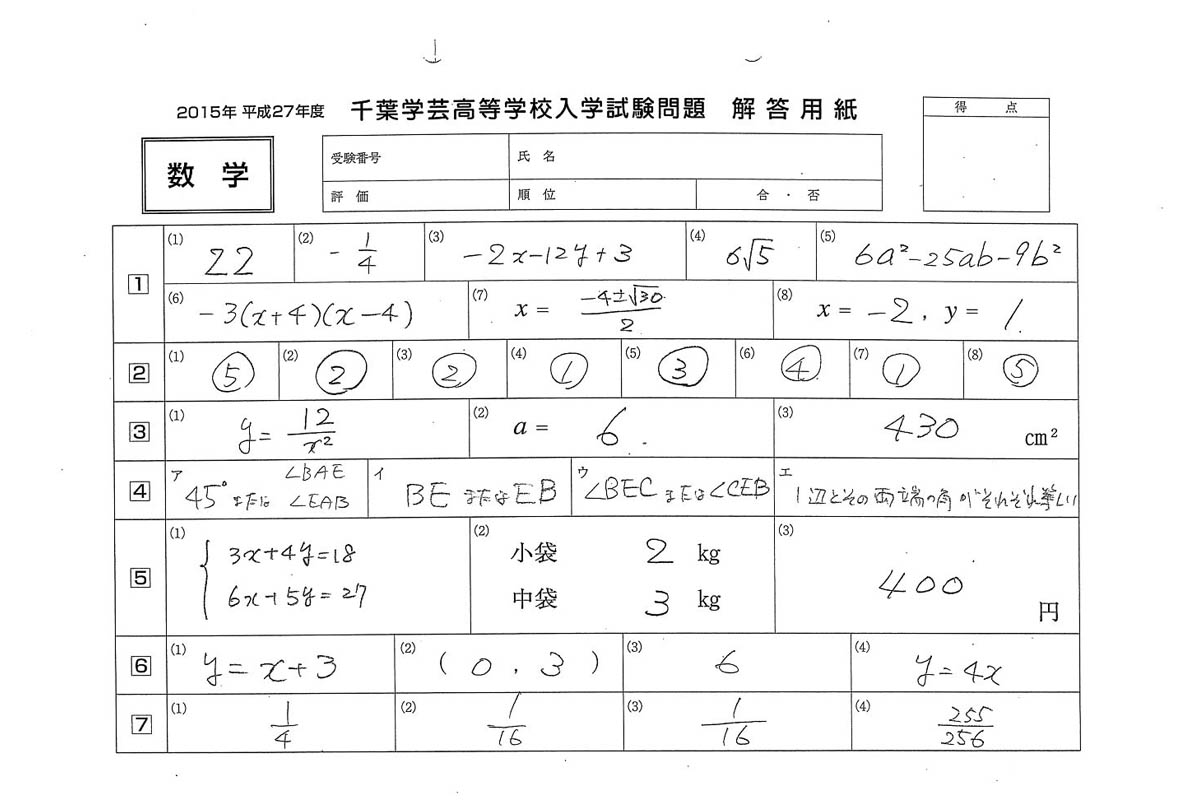 2015年 平成27年度 千葉学芸高等学校入学試験問題 解答用紙
得 点
数 学
受験番号 氏 名
評 価 順 位 合 ・ 否
1
(1) 22 (2) -1/4 (3) -2x-12y+3 (4) 6√5 (5) 6a²-25ab-9b²
(6) -3(x+4)(x-4) (7) x = (-4±√30)/2 (8) x = -2, y = 1
2
(1) ⑤ (2) ② (3) ② (4) ① (5) ③ (6) ④ (7) ① (8) ⑤
3
(1) y = 12/x² (2) a = 6. (3) 430 cm²
4
ア 45° または ∠BAE ∠EAB イ BE または EB ウ ∠BEC または ∠CEB エ 1辺とその両端の角がそれぞれ等しい
5
(1) { 3x+4y=18 (2) 小袋 2 kg (3) 400 円
6x+5y=27 中袋 3 kg
6
(1) y = x+3 (2) ( 0 , 3 ) (3) 6 (4) y = 4x
7
(1) 1/4 (2) 1/16 (3) 1/16 (4) 255/256